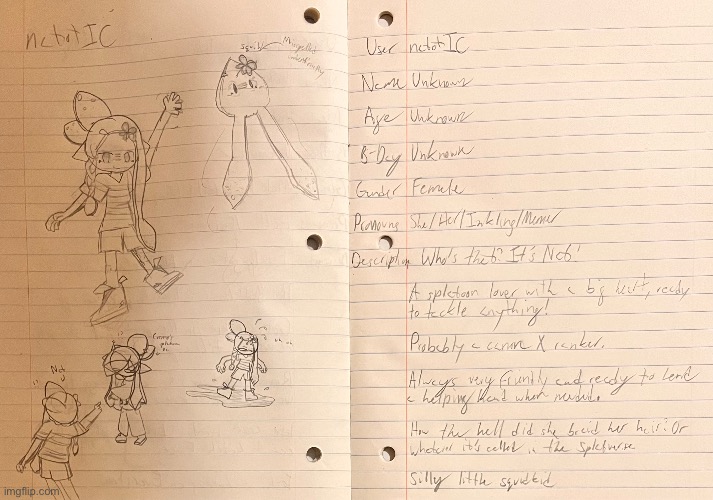 natotIC
squid
User natotIC
Name Unknown
Age Unknown
B-Day Unknown
Gender Female
Pronouns She/Her/Inkling/Memer
Description Who's that? It's Nat!
A splatoon lover with a big heart, ready
to tackle anything!
Probably a canon X ranker.
Always very friendly and ready to lend
a helping hand when needed.
How the hell did she braid her hair? Or
whatever it's called in the Splatverse
Silly little squidkid
Nat
imgflip.com